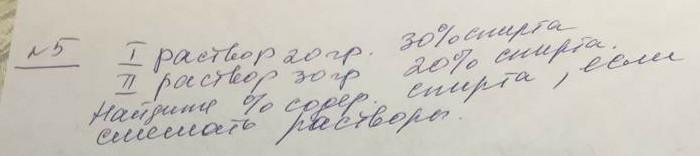 №5 I раствор 20 гр. 30% спирта
II раствор 30 гр 20% спирта.
Найдите % содер. спирта, если
смешать растворы.